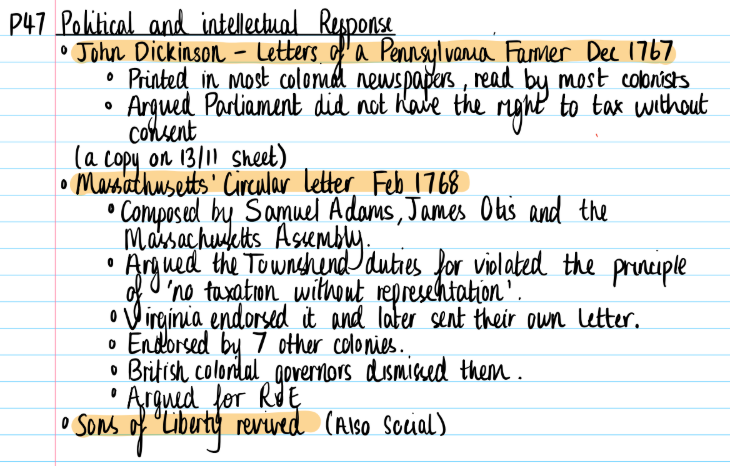 P47 Political and intellectual Response
• John Dickinson – Letters of a Pennsylvania Farmer Dec 1767
• Printed in most colonial newspapers, read by most colonists
• Argued Parliament did not have the right to tax without
consent
(a copy on 13/11 sheet)
• Massathusetts' Circular letter Feb 1768
• Composed by Samuel Adams, James Otis and the
Massachusetts Assembly.
• Argued the Townshend duties for violated the principle
of 'no taxation without representation'.
• Virginia endorsed it and later sent their own letter.
• Endorsed by 7 other colonies.
• British colonial governors dismissed them.
• Argued for
• Sons of Liberty revived (Also Social)